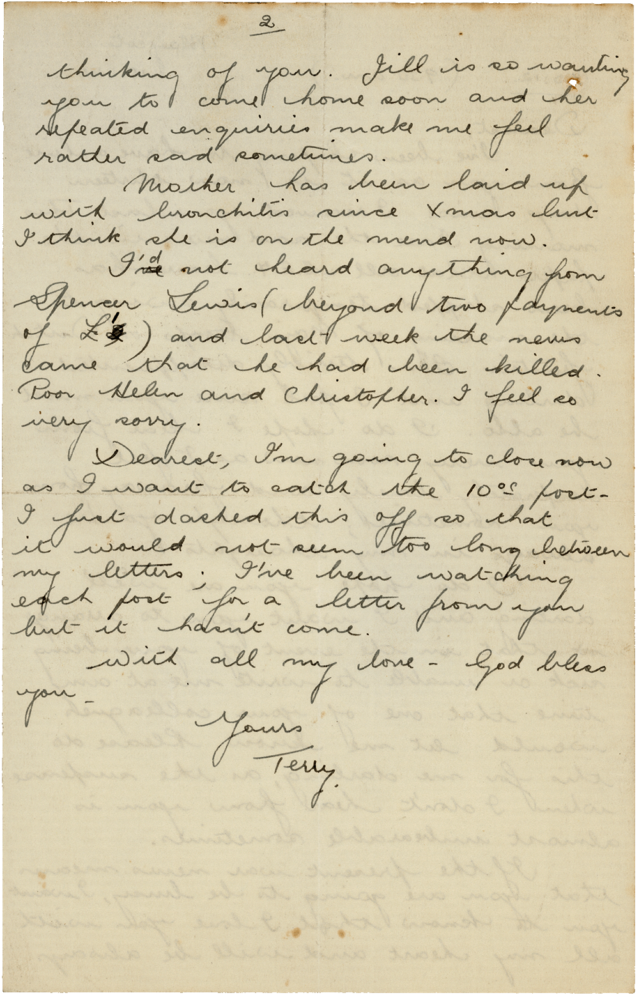 2
thinking of you. Jill is so wanting
you to come home soon and her
repeated enquiries make me feel
rather sad sometimes.
Mother has been laid up
with bronchitis since Xmas but
I think she is on the mend now.
I'd not heard anything from
Spencer Lewis (beyond two payments
of £ ) and last week the news
came that he had been killed.
Poor Helen and Christopher. I feel so
very sorry.
Dearest, I'm going to close now
as I want to catch the 10os post -
I just dashed this off so that
it would not seem too long between
my letters; I've been watching
each post for a letter from you
but it hasn't come.
With all my love - God bless
you -
Yours
Terry.